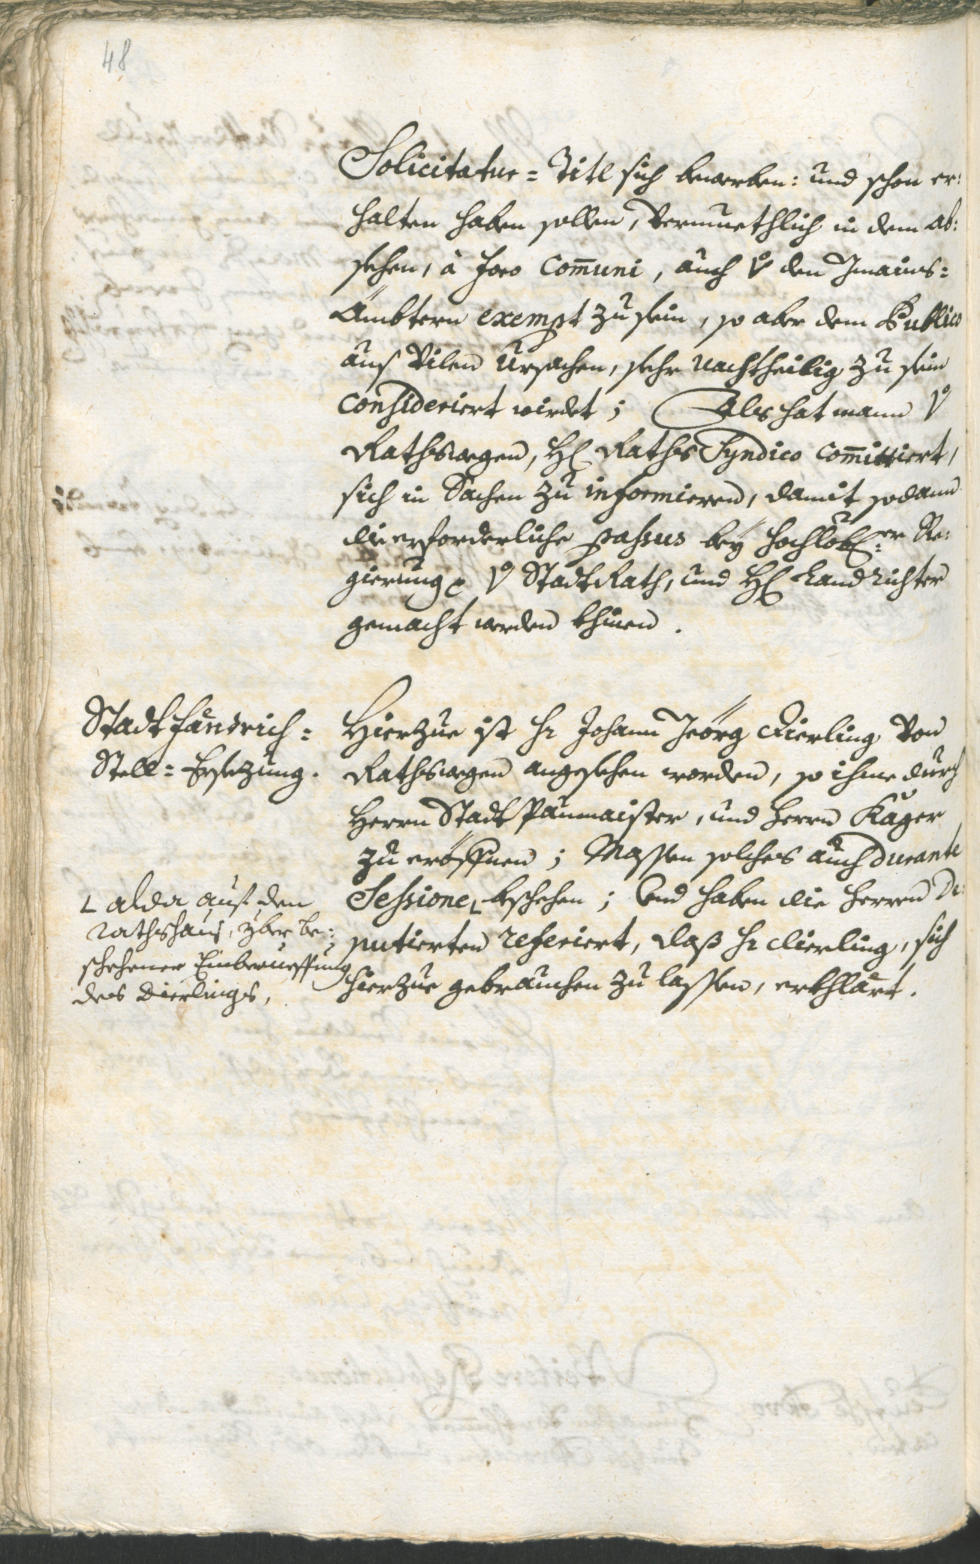 48
Solicitatur= Titl sich bewerben: und schon er:
halten haben sollen, Vermuethlich in dem ab:
sehen, à foro Com̄uni, auch v̊ den
Ämbtern exempt zu sein, so aber dem Publico
aus Vilen Ursachen, sehr nachtheilig zu sein
consideriert wirdet; Als hat mann v̊
Rathswegen, H: Raths Syndico com̄ittiert,
sich in Sachen zu informieren, damit sodann
die erforderliche passus beÿ hochlöbl:er Re:
gierung, v̊ StadtRath, und H: Landrichter
gemacht werden khinen.
Stadt Fändrich=
Stell= Ersezung.
Hierzue ist Hr Johann Jeörg Dierling Von
Rathswegen angesehen worden, so ihme durch
Herrn Stadt Paumaister, und Herrn Kager
zu eröffnen; Massen solches auch durante
Sessione, ∟ beschehen; Und haben die Herren De:
putierten referiert, daß Hr Dierling, sich
hierzue gebrauchen zu lassen, erkhlärt.
∟ alda auf dem
Rathshaus, yber be:
schehener Einberueffung
des Dierlings,